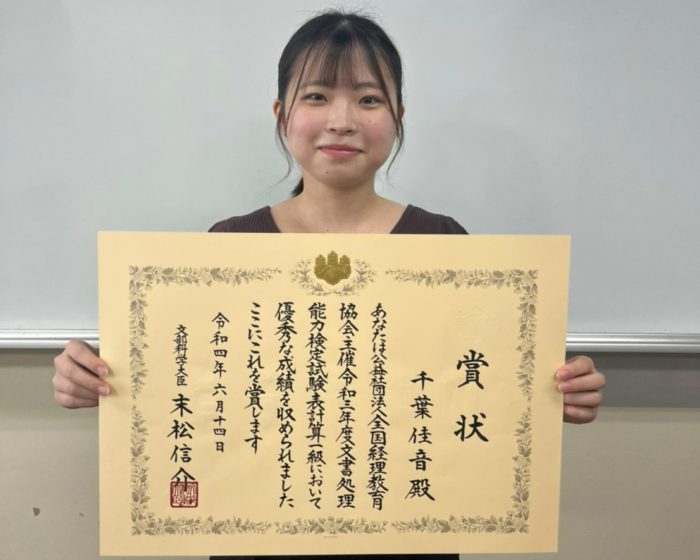 賞状
千葉佳音殿
あなたは公益社団法人全国経理教育
協会主催令和三年度文書処理
能力検定試験表計算一級において
優秀な成績を収められました
ここにこれを賞します
令和四年六月十四日
文部科学大臣 末松信介